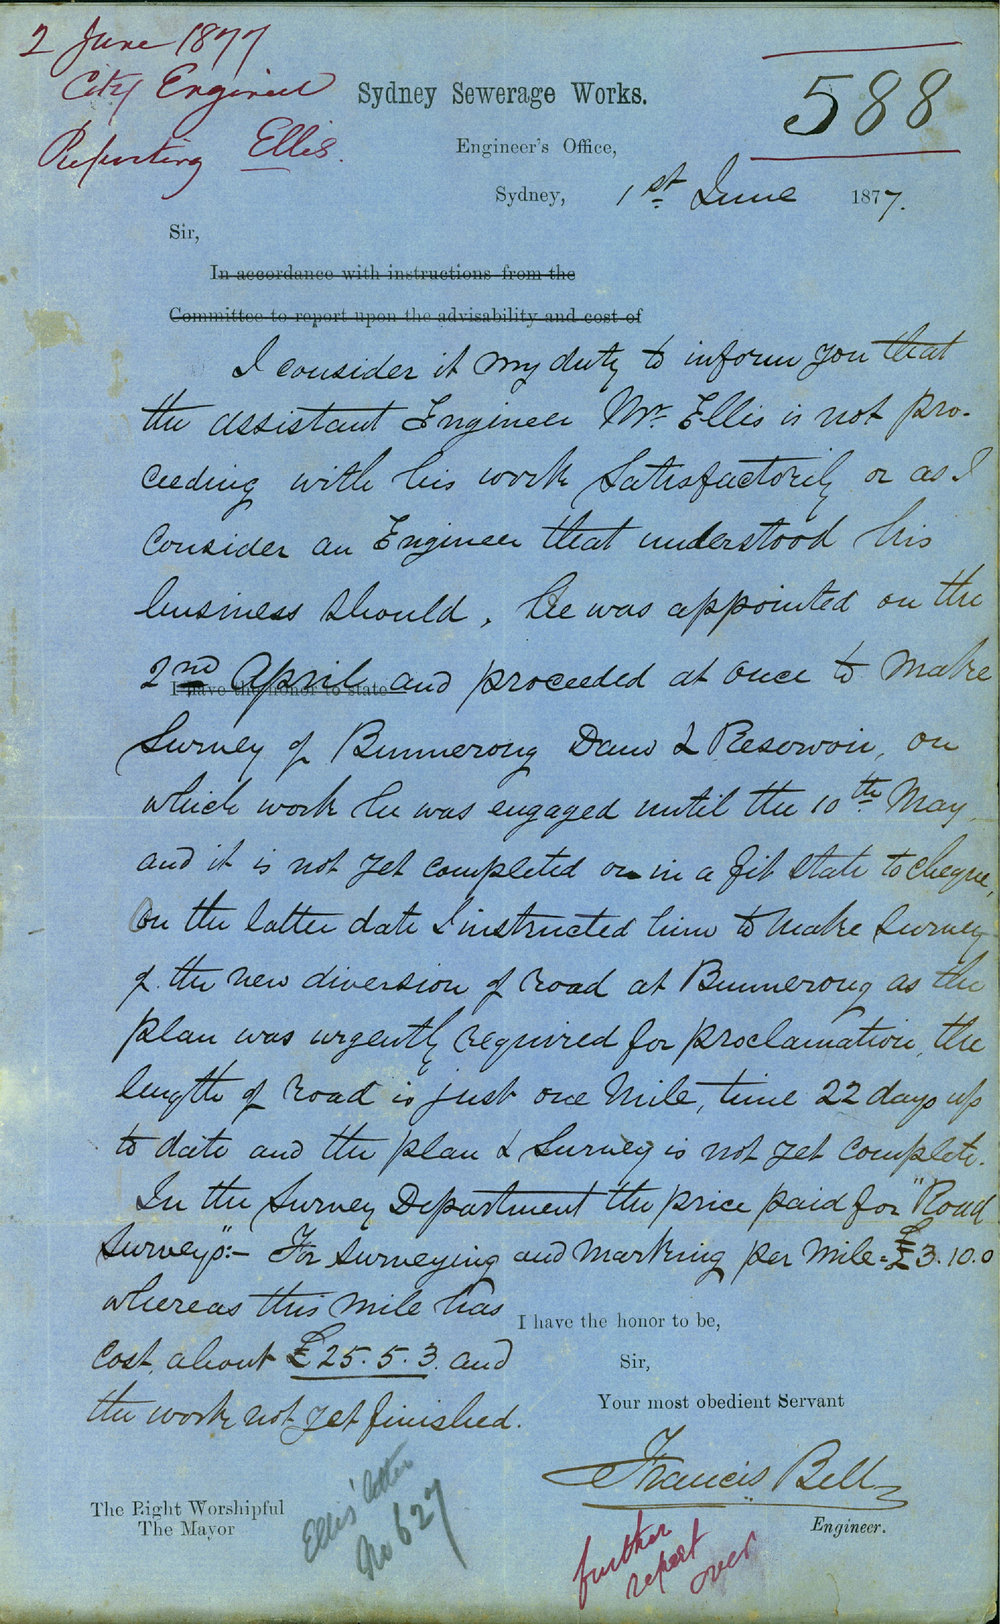 2 June 1877
City Engineer
Reporting Ellis.
588
Sydney Sewerage Works.
Engineer's Office,
Sydney, 1st June 1877.
Sir,
In accordance with instructions from the
Committee to report upon the advisability and cost of
I consider it my duty to inform you that
the assistant Engineer Mr. Ellis is not pro-
ceeding with his work satisfactorily or as I
consider an Engineer that understood his
business should, he was appointed on the
I have the honor to state
2nd April and proceeded at once to make
Survey of Bunnerong Dam & Reservoir, on
which work he was engaged until the 10th May,
and it is not yet completed or in a fit state to
on the latter date I instructed him to make survey
of the new diversion of road at Bunnerong as the
plan was urgently required for proclamation, the
length of road is just one mile, time 22 days up
to date and the plan & Survey is not yet complete.
In the Survey Department the price paid for "Road
Surveys":- For surveying and marking per mile = £3.10.0
whereas this mile has
cost about £25.5.3. and
the work not yet finished.
I have the honor to be,
Sir,
Your most obedient Servant
Francis Bell
Engineer.
The Right Worshipful
The Mayor
Ellis' letter
No 627
further
report
over